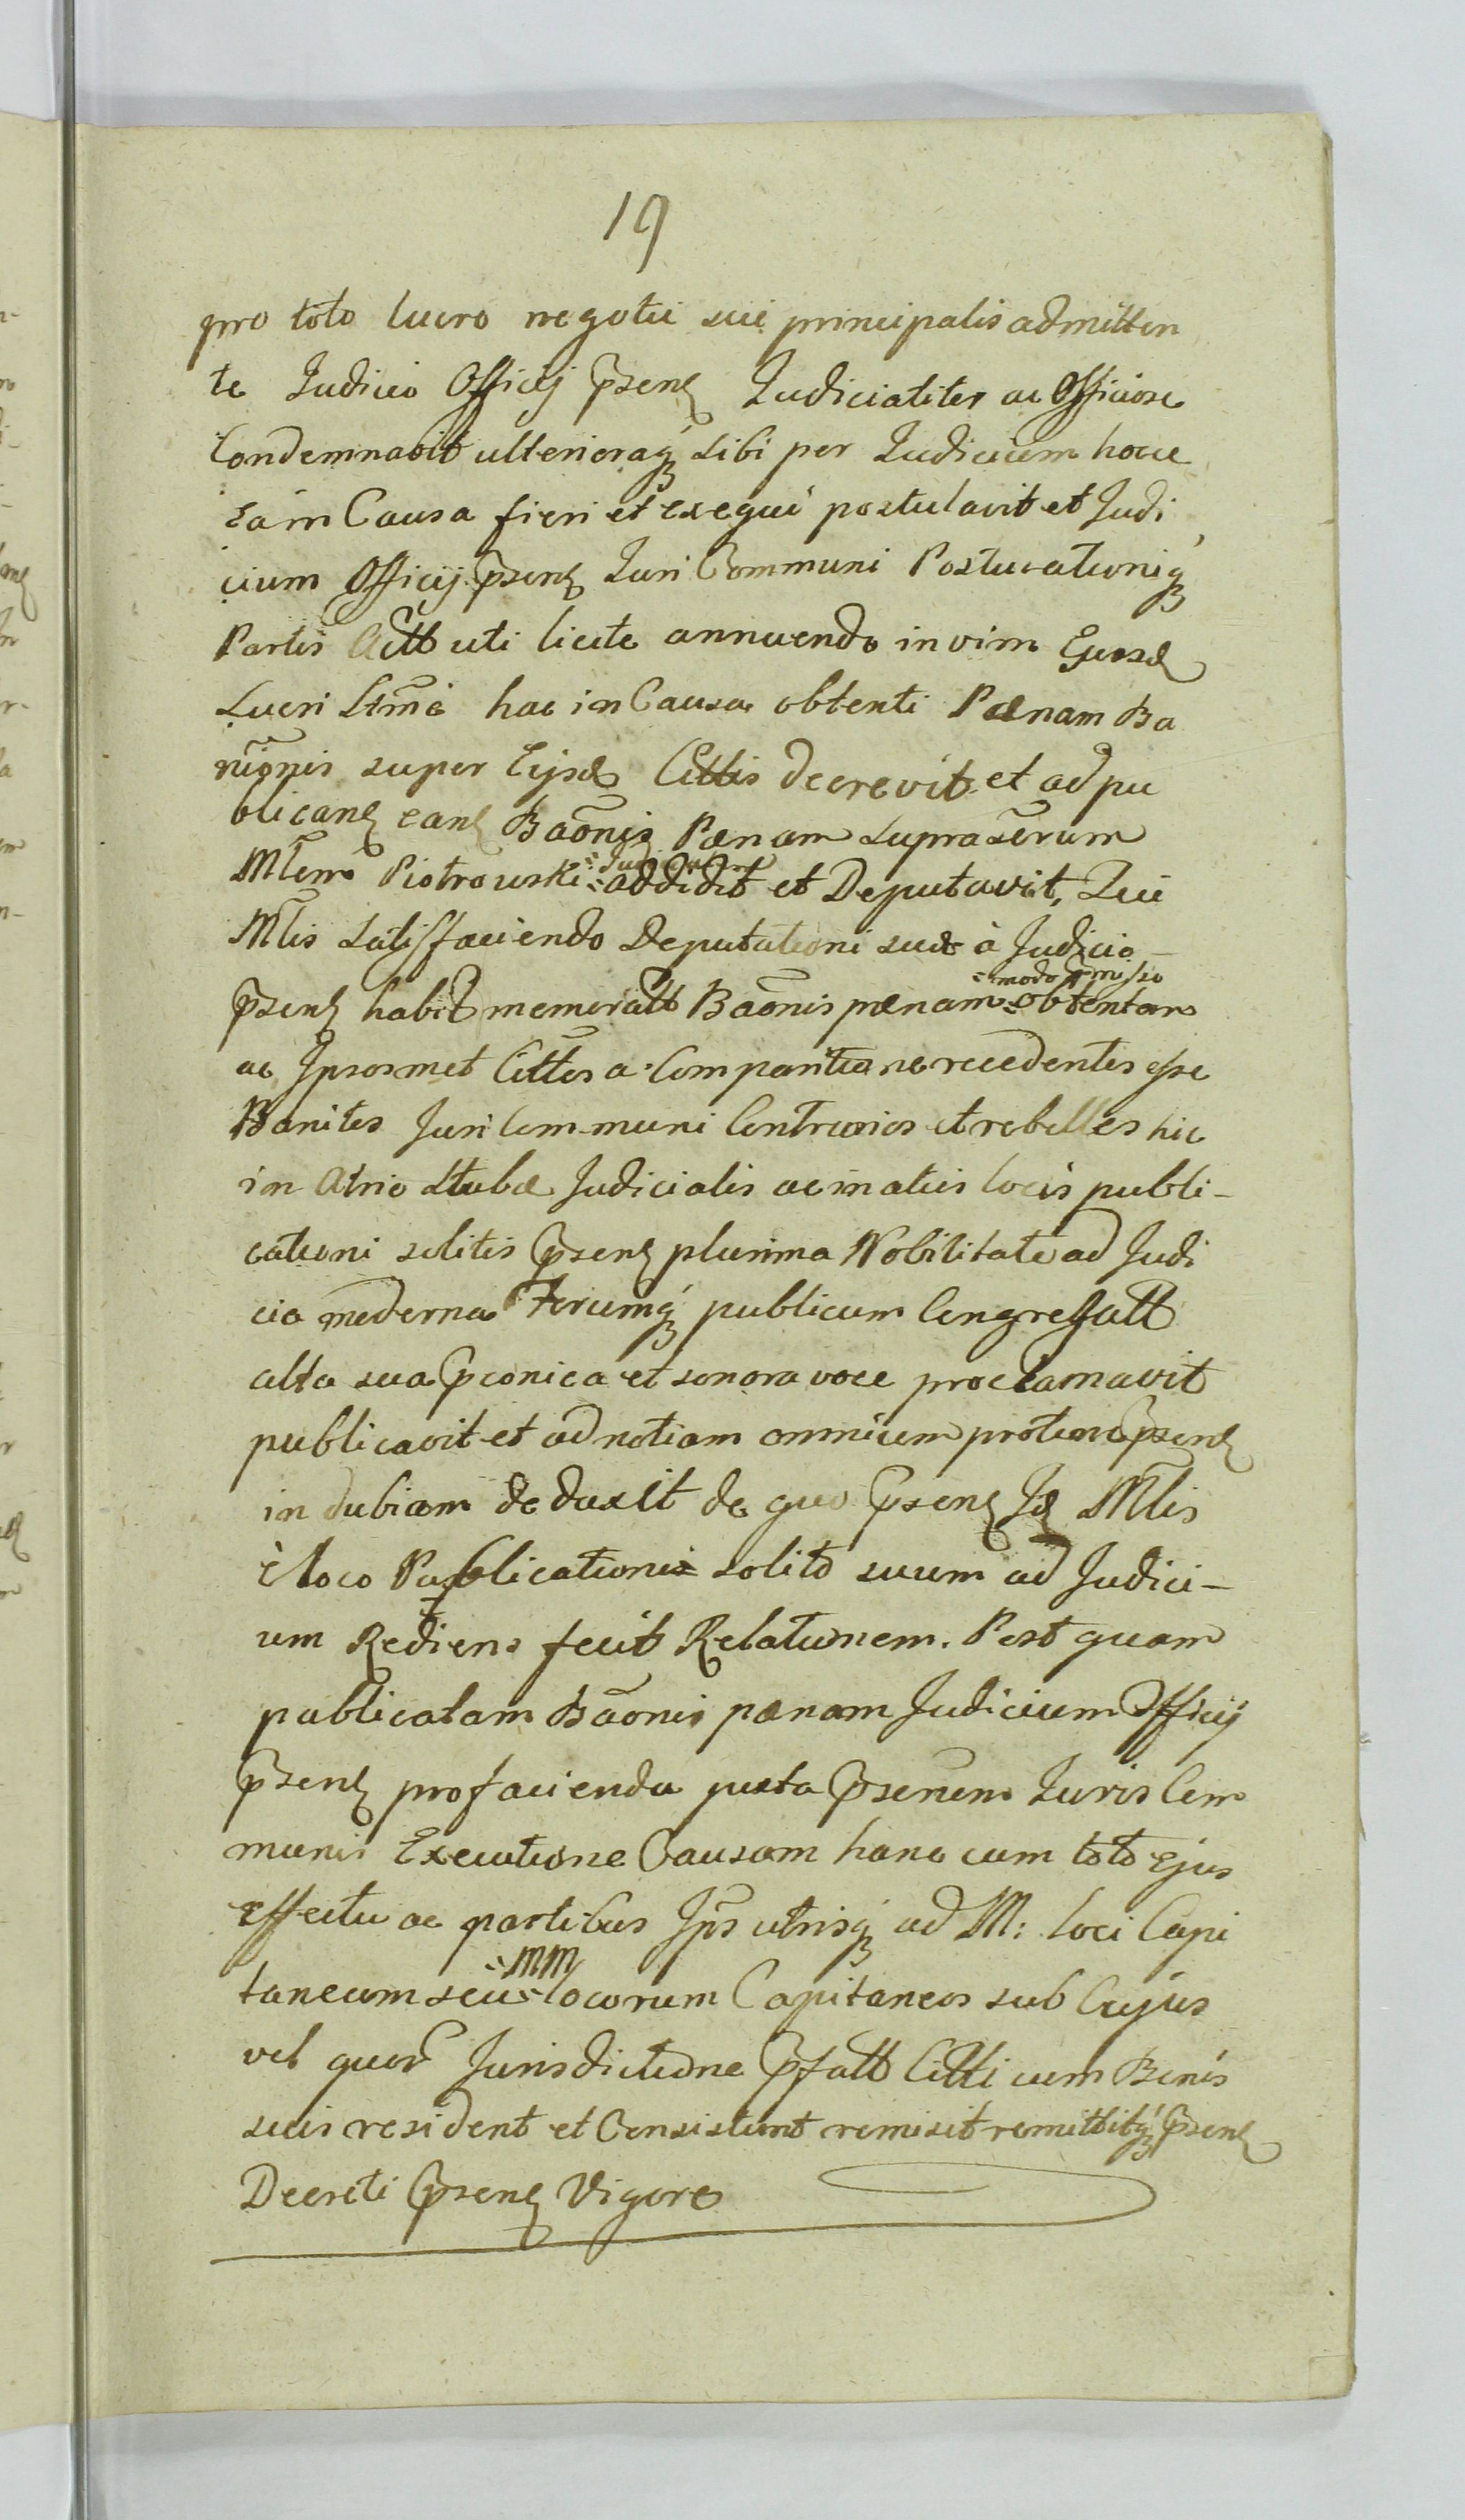 19
pro toto lucro negotii sui principalis admitten
te Judicio Officij p̃senꝭ Judicialiter ac Officiose
Condemnavit ulterioraq́ꝫ sibi per Judicium hocce
ea in Causa fieri et exequi postulavit et Judi
cium Officij p̃senꝭ Juri Communi Postulationiq́ꝫ
Partis Actt uti licite annuendo in vim Ejusd
Lucri Ltm̃i hac in Causa obtenti Pænam Ba
niõnis super Eijsd Cittis decrevit et ad pu
blicanꝭ eanꝭ Baõnis Pænam supra Serum
Mlem Piotrowski addidit et Deputavit, Qui
Mlis satisfaciendo Deputationi suæ à Judicio
=modo p̃misso
p̃senꝭ habit memoratt Baõnis pænam =obtentam
ac Ipsosmet Cittos a Comparitione recedentes esse
Banitos Juri Communi Contrarios et rebelles hic
in Atrio Stubæ Judicialis ac in aliis locis publi-
cationi solitis p̃senꝭ plurima Nobilitate ad Judi
cia moderna Forumq́ꝫ publicum Congregatt
alta sua p̃conica et sonora voce proclamavit
publicavit et ad notiam omnium protunc p̃senꝭ
in dubiam deduxit de quo p̃senꝭ Id Mlis
è loco Publicationis solito suum ad Judici-
um Rediens fecit Relationem. Post quam
publicatam Baõnis pænam Judicium Officij
p̃senꝭ pro facienda juxta p̃senem Juris Com
munis Executione Causam hanc cum toto Ejus
effectu ac partibus Ips̃ utrisq́ꝫ ad M: loci Capi
=MM
taneum seu =locorum Capitaneos sub Cujus
vel quor̃ Jurisdictione p̃fatt Citti cum Bonis
suis resident et Consistunt remisit remittitq́ꝫ p̃senꝭ
Decreti p̃senꝭ Vigore